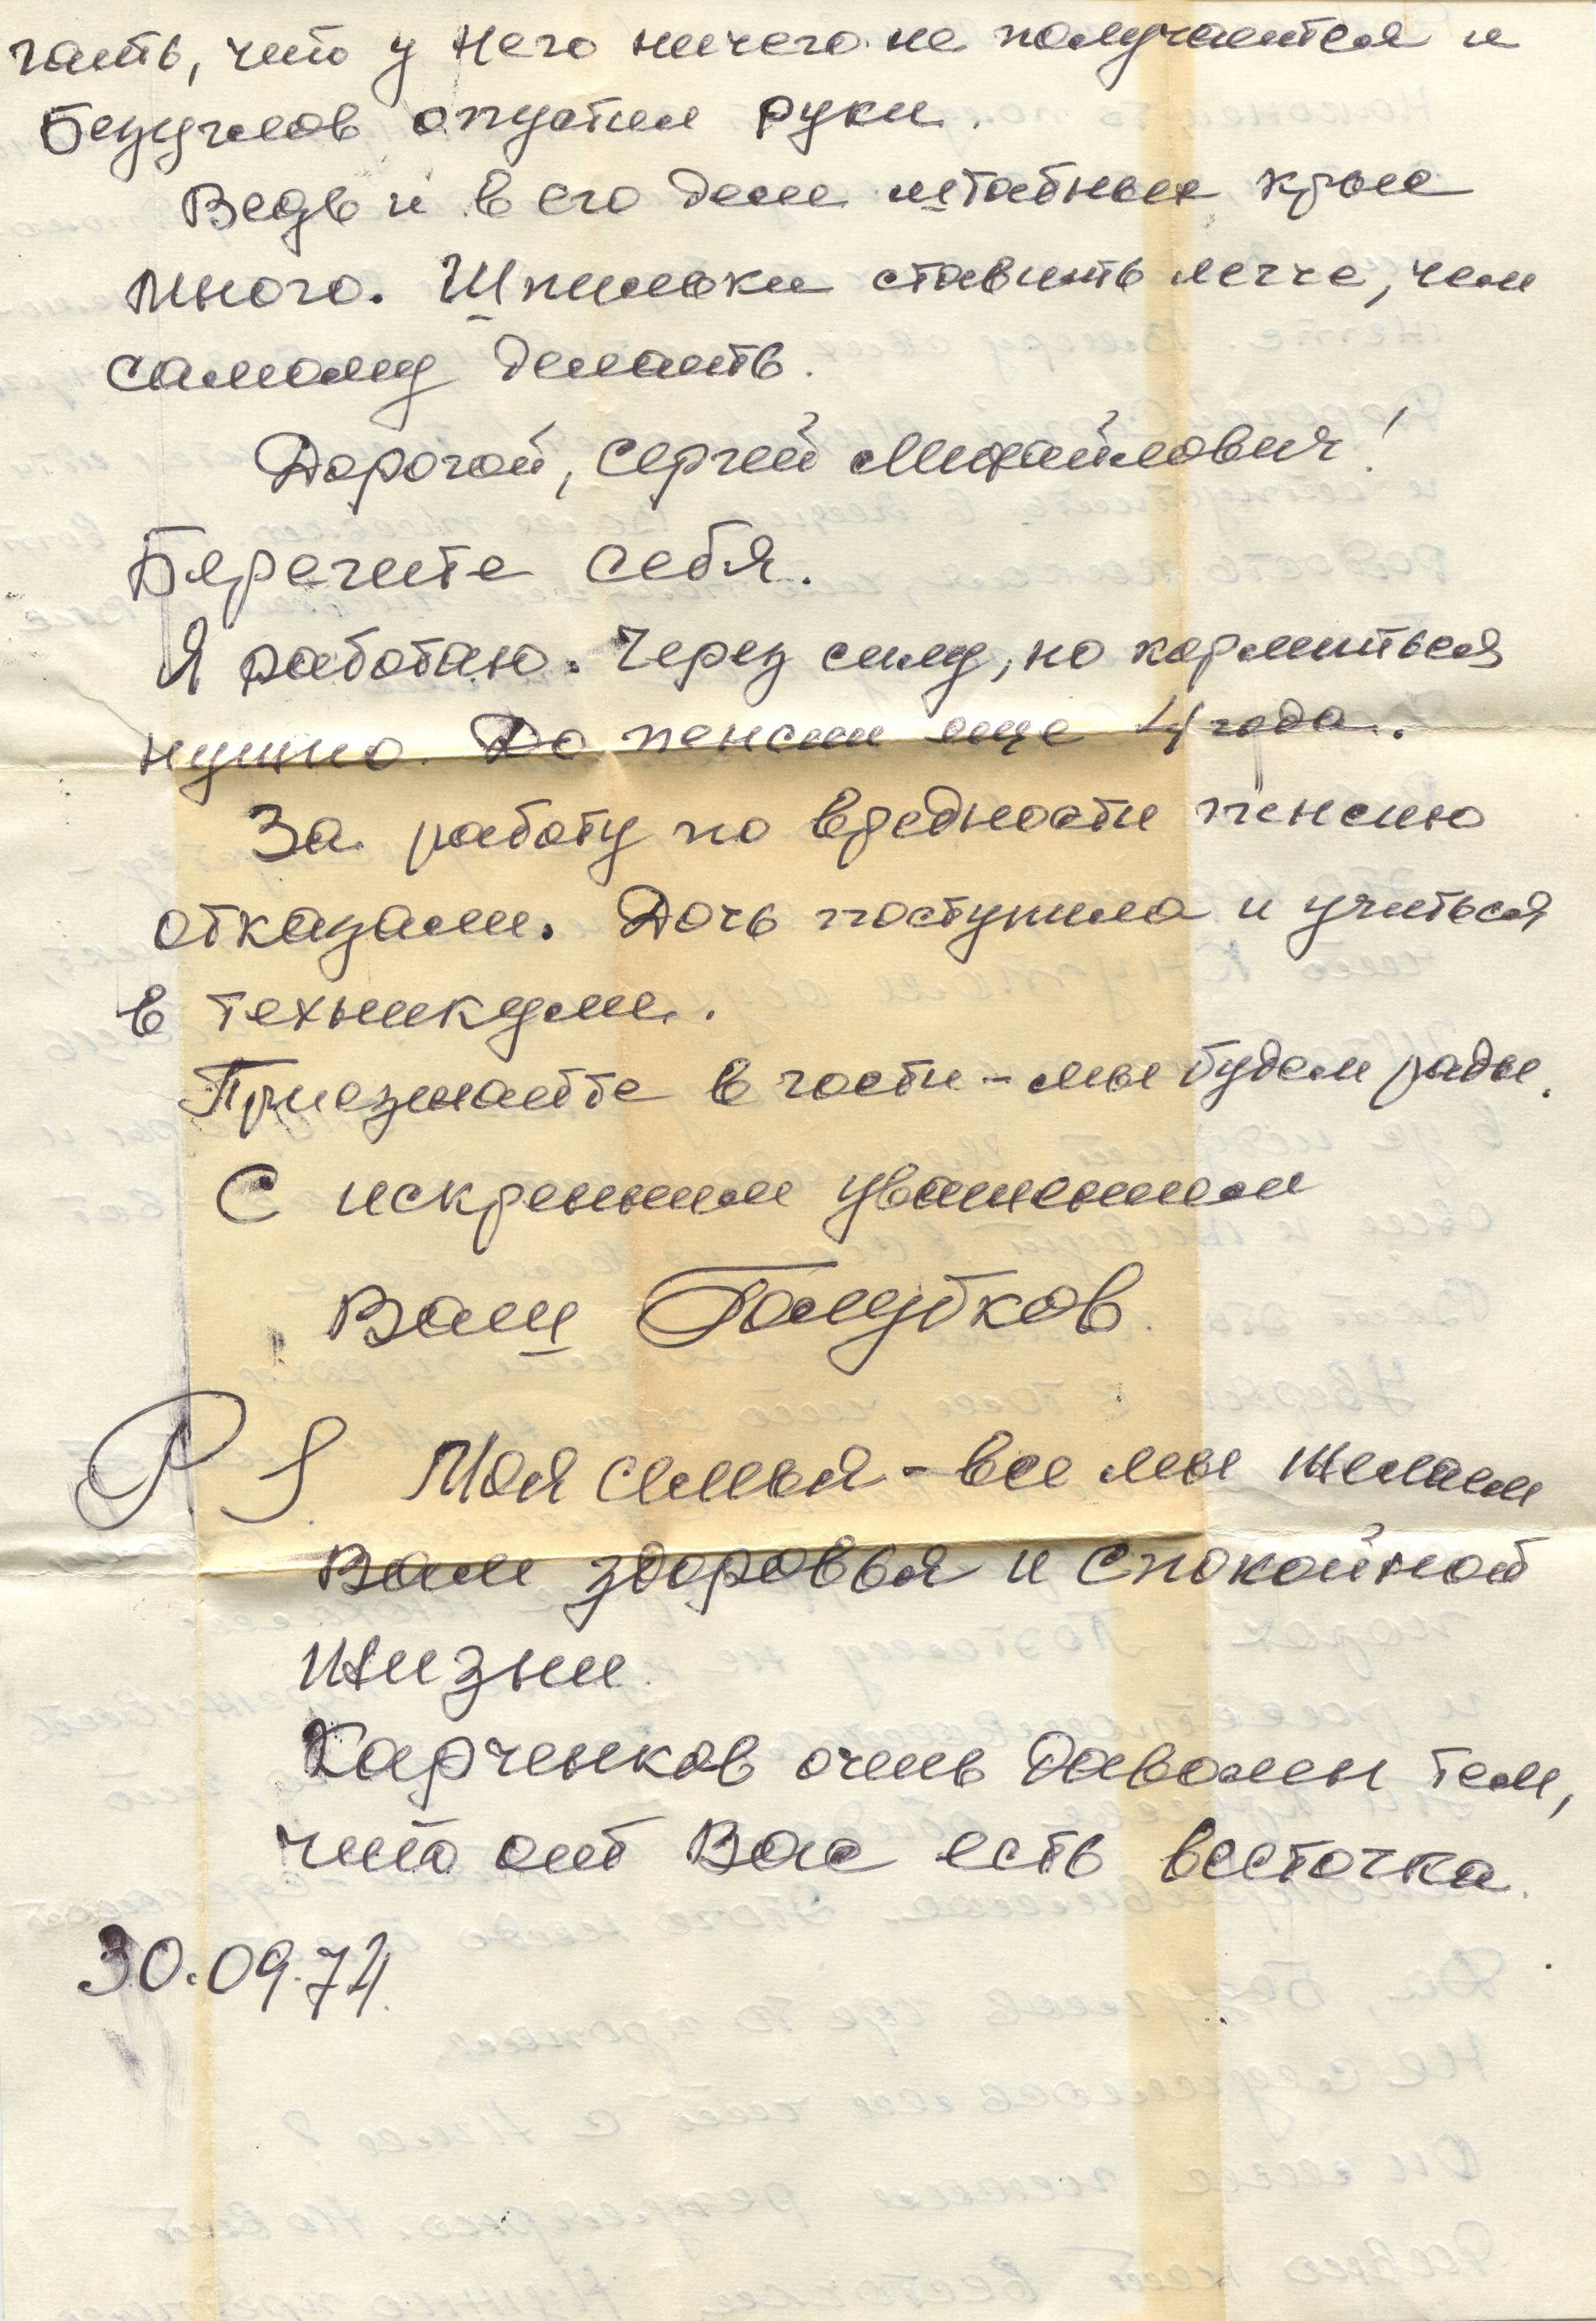 гать, что у него ничего не получается и
опустил руки.
Ведь и в его деле штабных крыс
много. Шпильки ставить легче, чем
самому делать.
Дорогой, Сергей Михайлович!
Берегите себя.
Я работаю. Через силу, но кормиться
нужно. До пенсии еще 4 года.
За работу по вредности пенсию
отказали. Дочь поступила и учиться
в техникуме.
Приезжайте в гости - мы будем рады.
С искренним уважением
Ваш Голубков.
P. S. Моя семья - все мы желаем
Вам здоровья и спокойной
жизни.
Харченков очень даволен тем,
что от Вас есть весточка.
30.09.74.